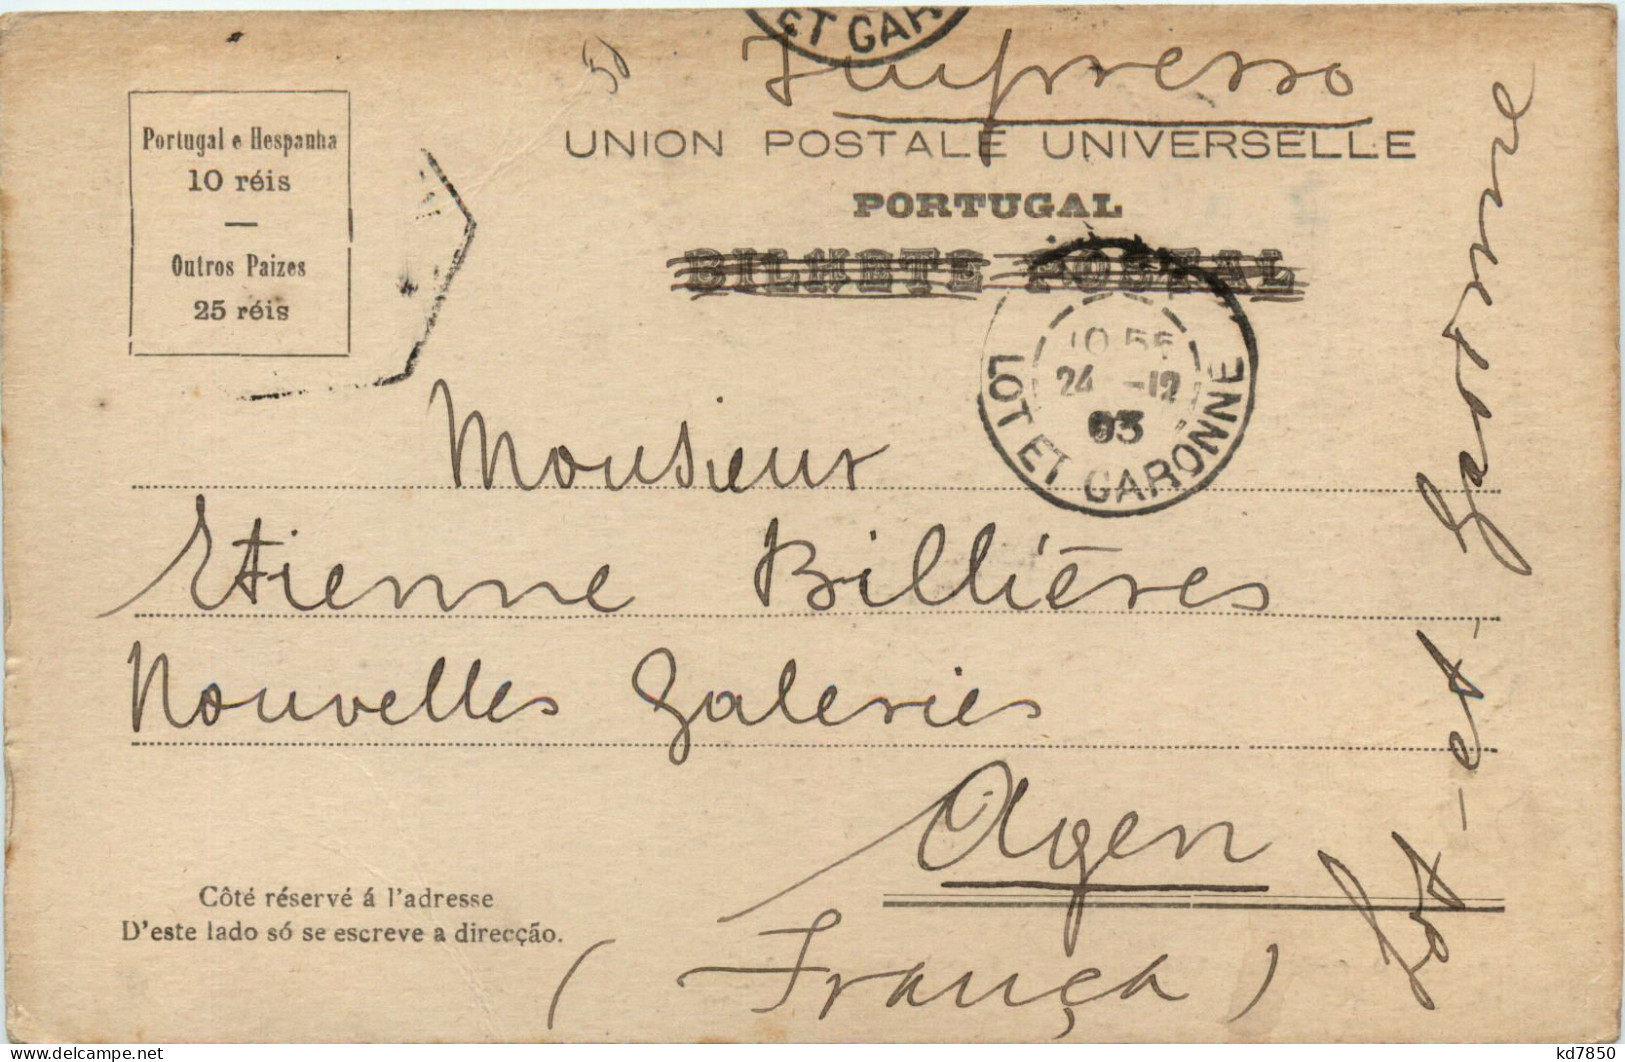 ET GAR
50
Impresso
UNION POSTALE UNIVERSELLE
PORTUGAL
BILHETE POSTAL
Portugal e Hespanha
10 réis
Outros Paizes
25 réis
24 -12
03
LOT ET GARONNE
Monsieur
Etienne Billières
Nouvelles Galeries
Agen
(França)
Lot-et-Garonne
Côté réservé á l'adresse
D'este lado só se escreve a direcção.
kd7850